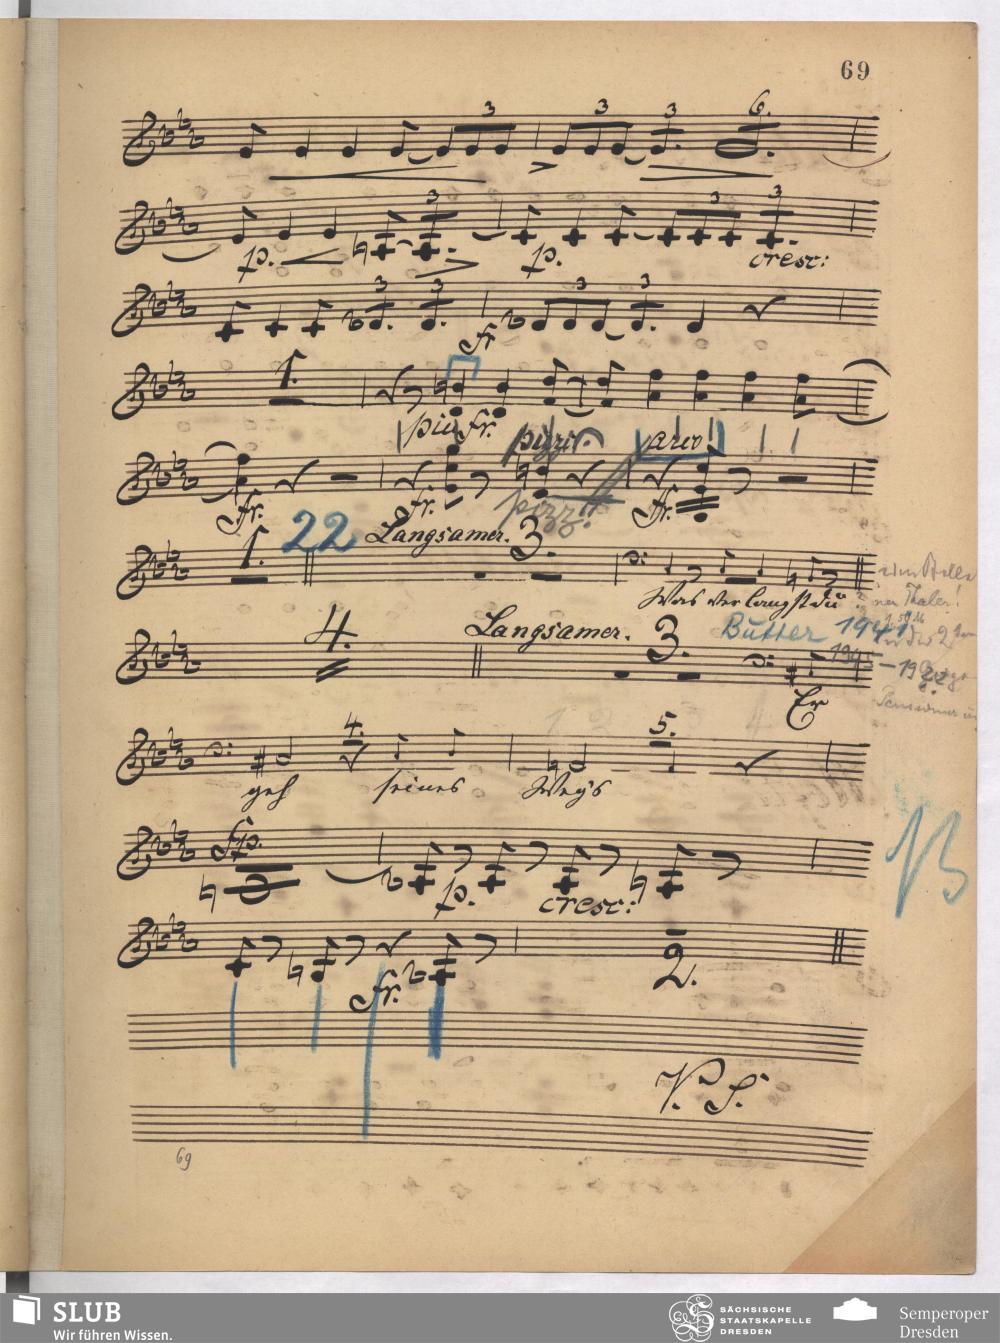 69
3 3 3 6.
3 3 3
p. p. cresc:
3 3 3 3
fr.
1.
più fr.
pizz. arco
fr. fr. pizz. fr.
1. 22 Langsamer. 3.
Was verlangst du?
ner Thaler!
4. Langsamer. 3. Butter 1941
1945-19
Er
4. 5.
geh seines Wegs
fp.
p. cresc:
fr. 2.
V. S.
69
SLUB
Wir führen Wissen.
SÄCHSISCHE
STAATSKAPELLE
DRESDEN
Semperoper
Dresden